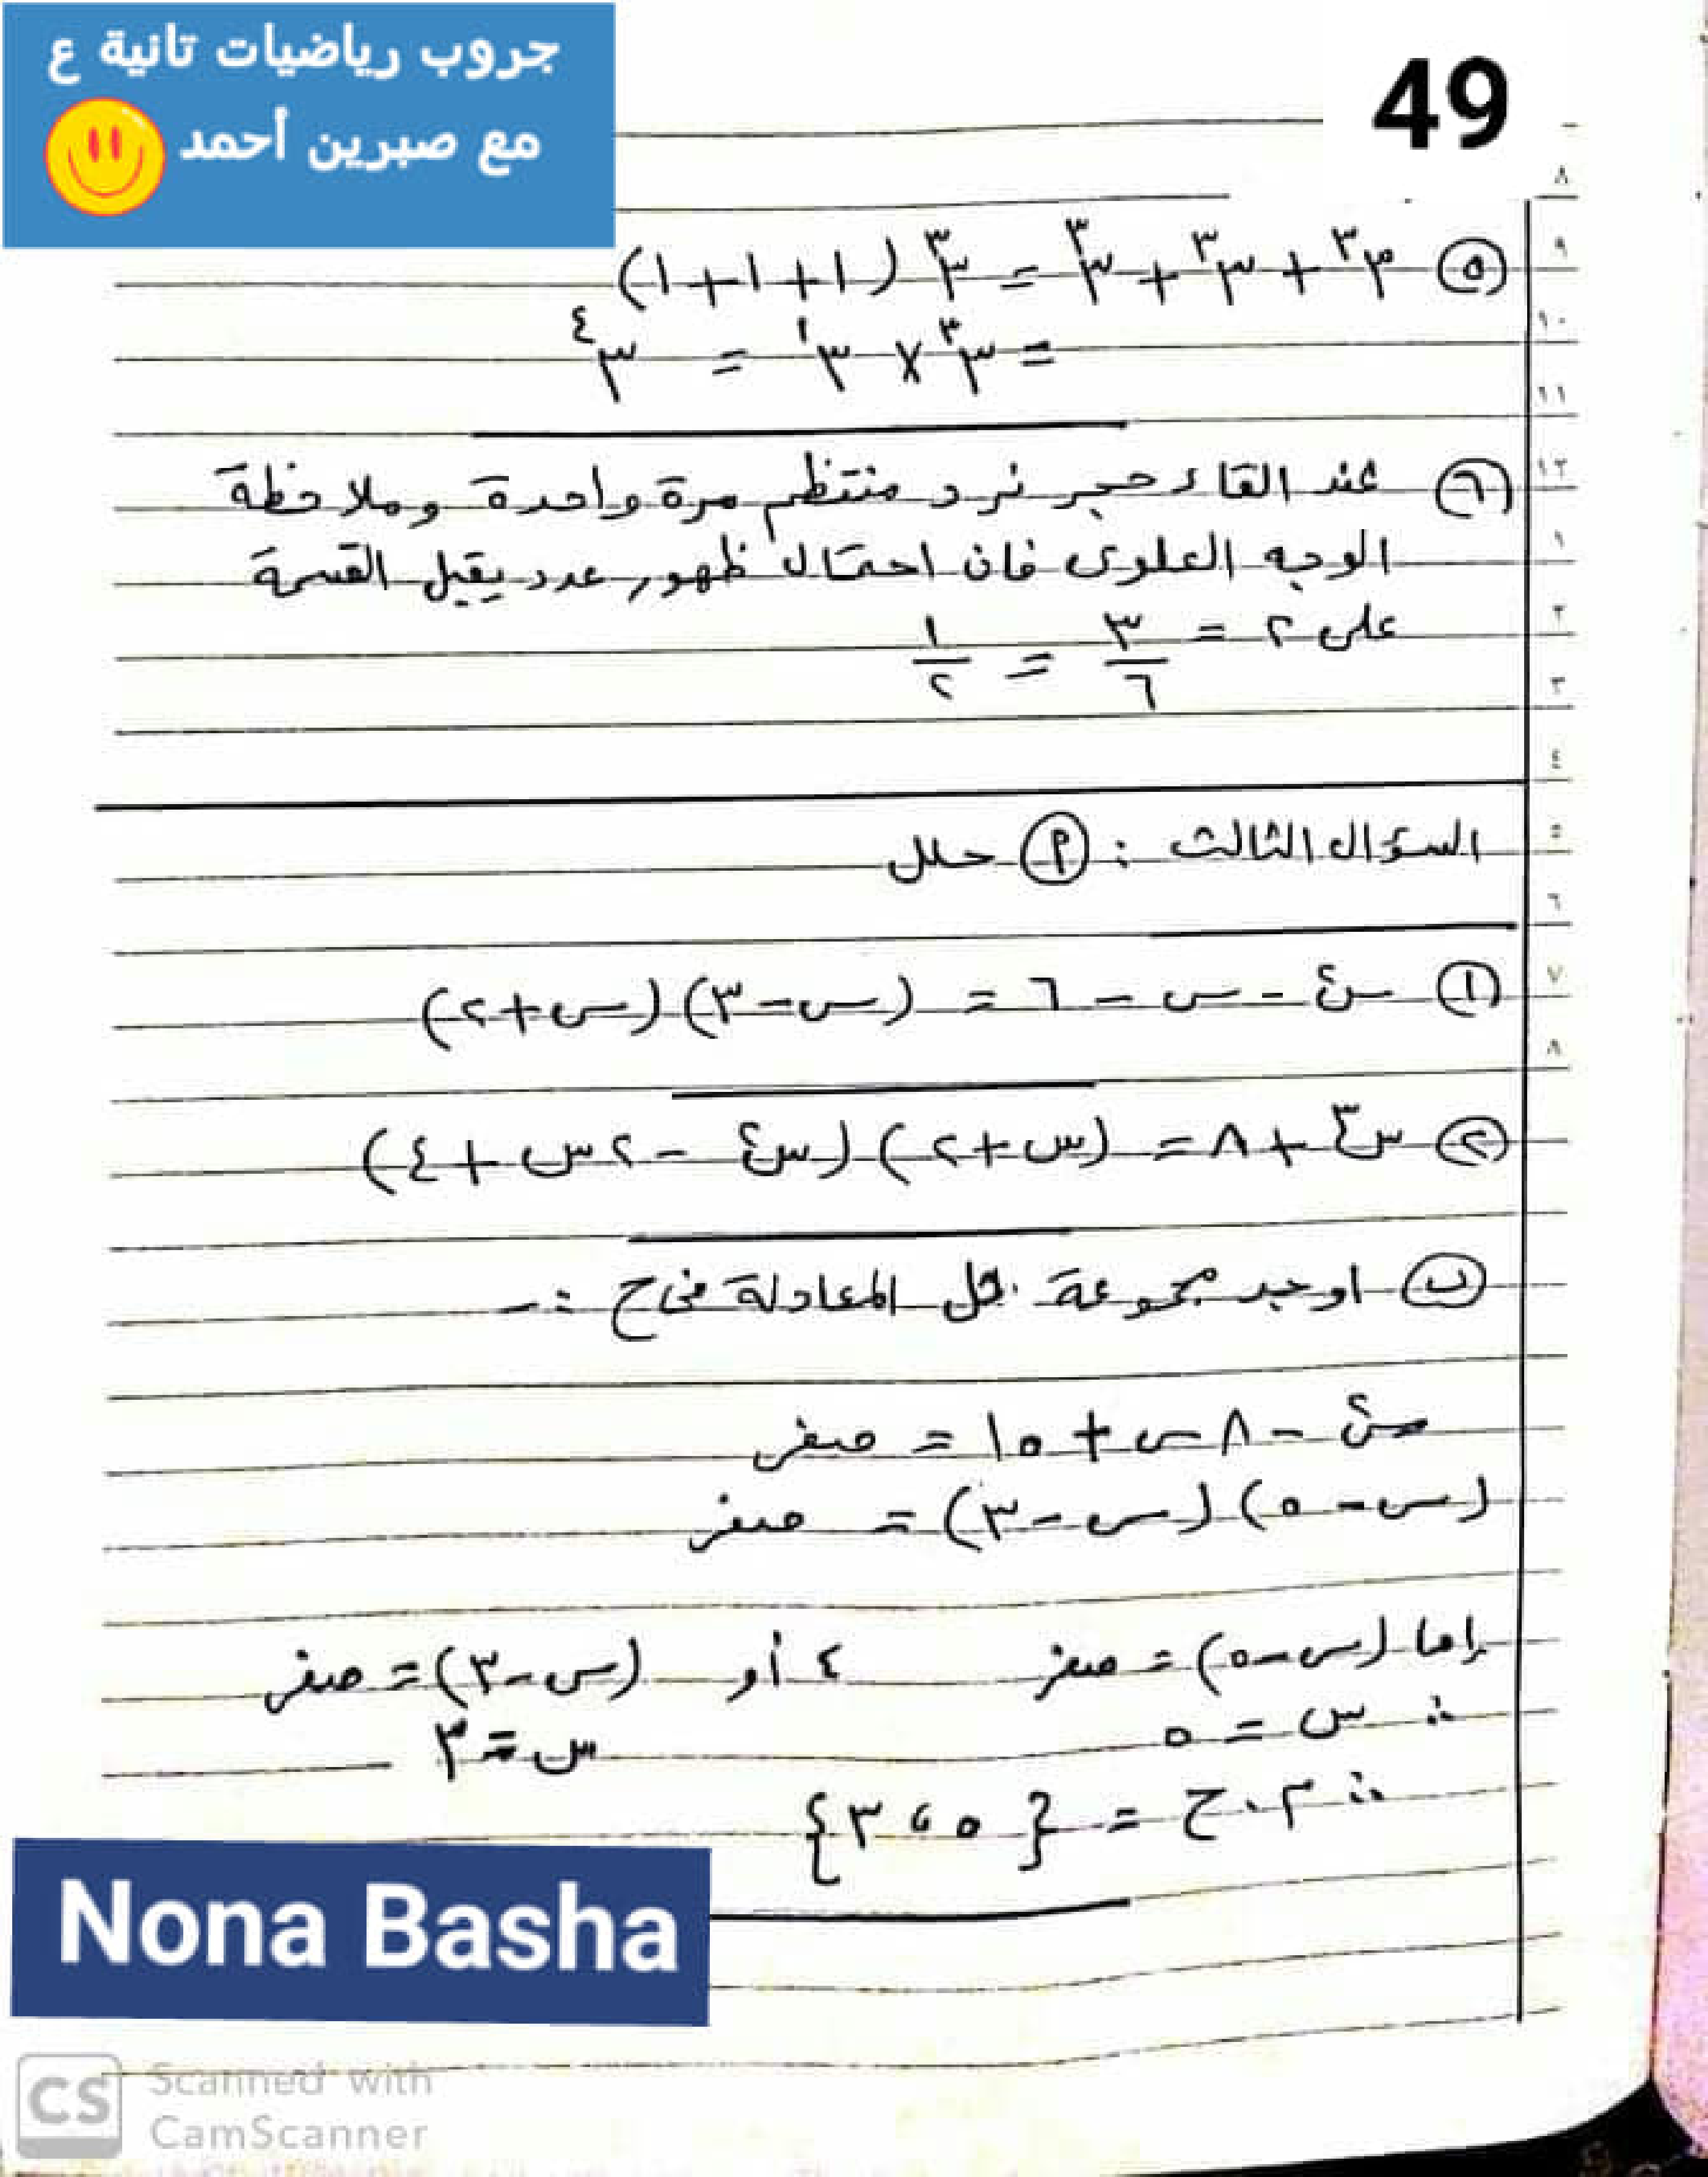 جروب رياضيات تانية ع
مع صبرين أحمد
49
٥ ٣³ + ٣³ + ٣³ = ٣³ (١+١+١)
= ٣³ × ٣¹ = ٣⁴
٦ عند القاء حجر نرد منتظم مرة واحدة وملاحظة
الوجه العلوى فان احتمال ظهور عدد يقبل القسمة
على ٢ = ٣/٦ = ١/٢
السؤال الثالث : ٩ حلل
١ س² - س - ٦ = (س - ٣) (س + ٢)
٢ س³ + ٨ = (س + ٢) (س² - ٢س + ٤)
ب اوجد مجموعة حل المعادلة فى ح :-
س² - ٨س + ١٥ = صفر
(س - ٥) (س - ٣) = صفر
إما (س - ٥) = صفر ، أو (س - ٣) = صفر
∴ س = ٥ س = ٣
∴ م.ح = {٥ ، ٣}
Nona Basha
CS Scanned with
CamScanner